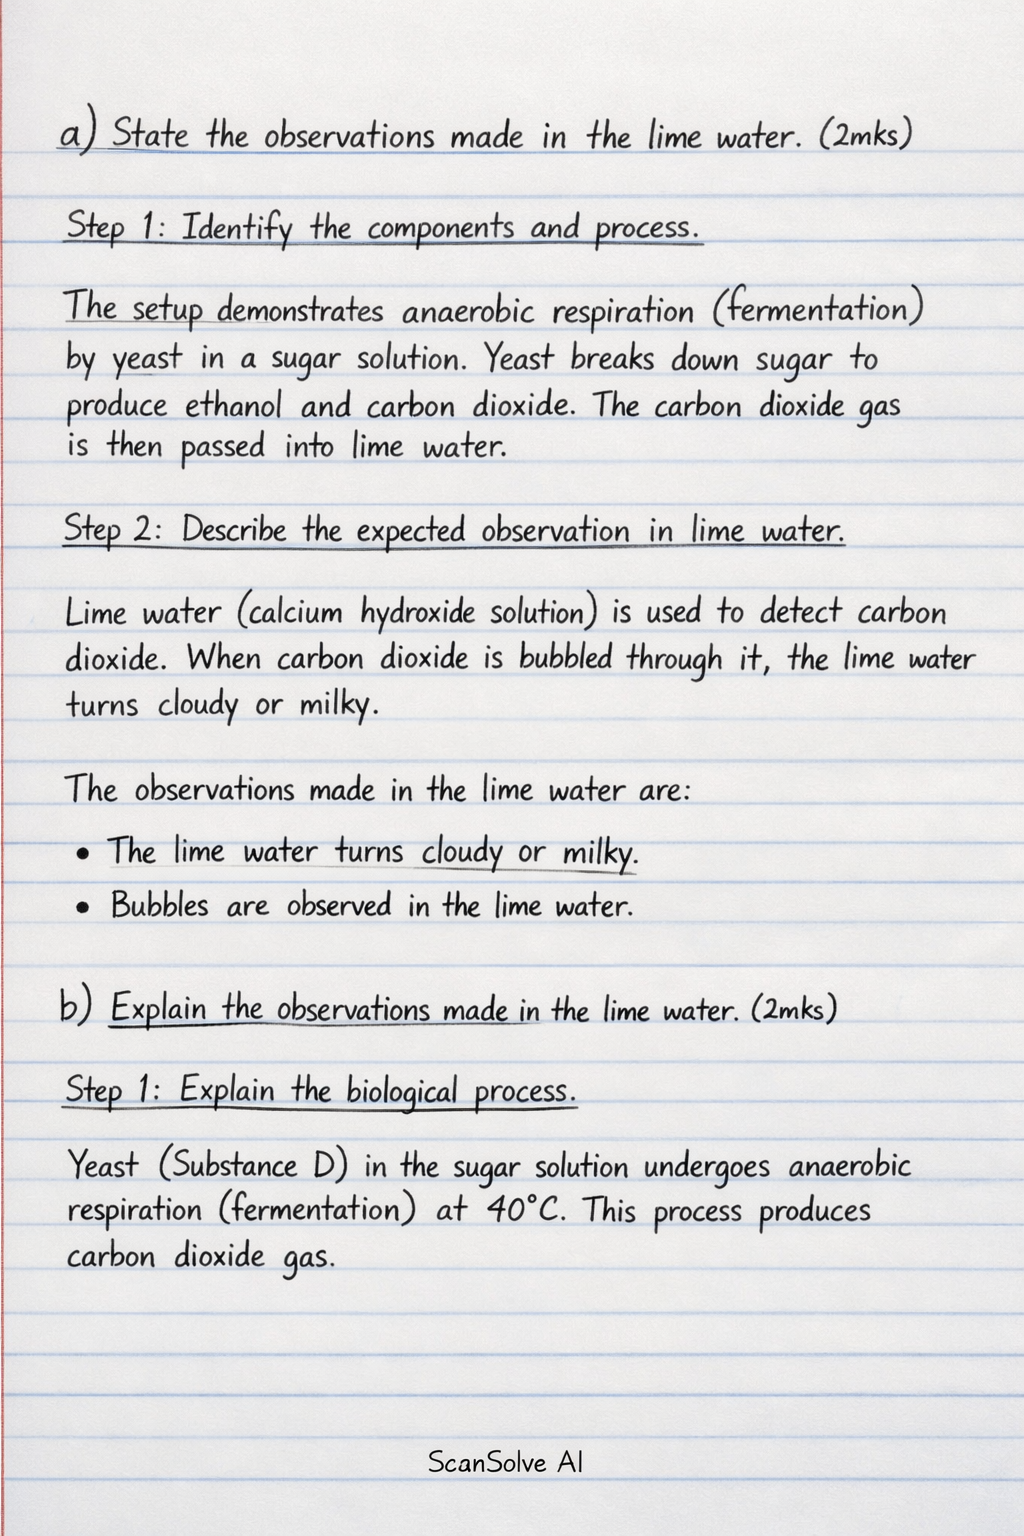 a) State the observations made in the lime water. (2mks)
Step 1: Identify the components and process.
The setup demonstrates anaerobic respiration (fermentation)
by yeast in a sugar solution. Yeast breaks down sugar to
produce ethanol and carbon dioxide. The carbon dioxide gas
is then passed into lime water.
Step 2: Describe the expected observation in lime water.
Lime water (calcium hydroxide solution) is used to detect carbon
dioxide. When carbon dioxide is bubbled through it, the lime water
turns cloudy or milky.
The observations made in the lime water are:
• The lime water turns cloudy or milky.
• Bubbles are observed in the lime water.
b) Explain the observations made in the lime water. (2mks)
Step 1: Explain the biological process.
Yeast (Substance D) in the sugar solution undergoes anaerobic
respiration (fermentation) at 40°C. This process produces
carbon dioxide gas.
ScanSolve AI